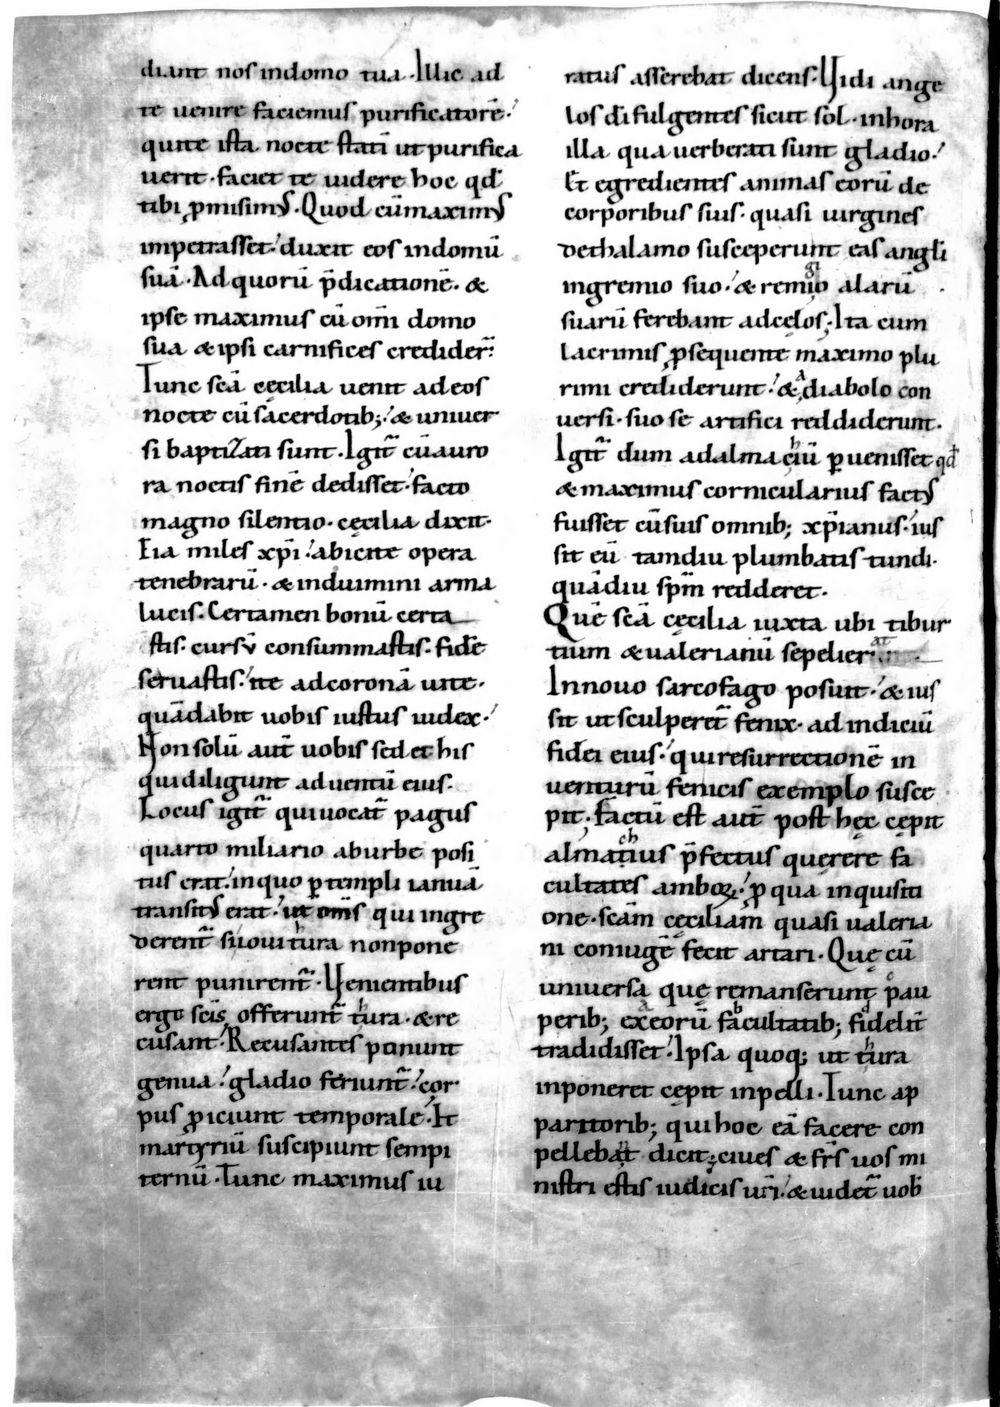 diant nos indomo tua. Illic ad
te uenire faciemus purificatorē.
qui te ista nocte statī ut purifica
uerit. faciet te uidere hoc qd̄
tibi ꝓmisimꝰ. Quod cū maximꝰ
impetrasset. duxit eos indomū
suā. Ad quorū p̄dicationē. &
ipse maximus cū om̄i domo
sua & ipsi carnifices credider̄.
Tunc sc̄a cęcilia uenit ad eos
nocte cū sacerdotib; & uniuer
si baptizati sunt. Igit̄ cū auro
ra noctis finē dedisset. facto
magno silentio. cęcilia dixit.
Eia miles xp̄i. abicite opera
tenebrarū. & induimini arma
lucis. Certamen bonū certa
stis. cursū consummastis. fidē
seruastis. ite ad coronā uite.
quā dabit uobis iustus iudex.
Non solū aut̄ uobis sed et his
qui diligunt aduentū eius.
Locus igit̄ qui uocat̄ pagus
quarto miliario aburbe posi
tus erat. inquo ꝑ templi ianuā
transitꝰ erat. ut om̄s qui ingre
derent̄ si ioui tura non pone
rent punirent̄. Uenientibus
ergo sc̄is offerunt̄ tura. & re
cusant. Recusantes ponunt
genua. gladio feriunt̄. cor
pus ꝓiciunt temporale. Et
martyriū suscipiunt sempi
ternū. Tunc maximus iu
ratus asserebat dicens. Uidi ange
los dī fulgentes sicut sol. inhora
illa qua uerberati sunt gladio.
Et egredientes animas eorū de
corporibus suis. quasi uirgines
dethalamo susceperunt eas angl̄i
ingremio suo. & remigio alarū
suarū ferebant adcęlos. Ita cum
lacrimis ꝓsequente maximo plu
rimi crediderunt. & a diabolo con
uersi. suo se artifici reddiderunt.
Igit̄ dum ad almachiū ꝑuenisset qd̄
& maximus cornicularius factꝰ
fuisset cū suis omnib; xp̄ianus. ius
sit eū tamdiu plumbatis tundi.
quādiu sp̄m redderet.
Quē sc̄a cęcilia iuxta ubi tibur
tium & ualerianū sepelierat
Innouo sarcofago posuit. & ius
sit ut sculperet̄ fenix. ad indiciū
fidei eius. qui resurrectionē in
uenturū fenicis exemplo susce
pit. factū est aut̄ post hęc cępit
almachius p̄fectus querere fa
cultates amboꝝ. ꝓ qua inquisiti
one. sc̄am cęciliam quasi ualeria
ni coniugē fecit artari. Quę cū
uniuersa quę remanserunt pau
perib; ex eorū facultatib; fidelit̄
tradidisset. Ipsa quoq; ut thura
inponeret cępit inpelli. Tunc ap
paritorib; qui hoc eā facere con
pellebant dicit; ciues & fr̄s uos mi
nistri estis iudicis ur̄i. & uidet̄ uob̄